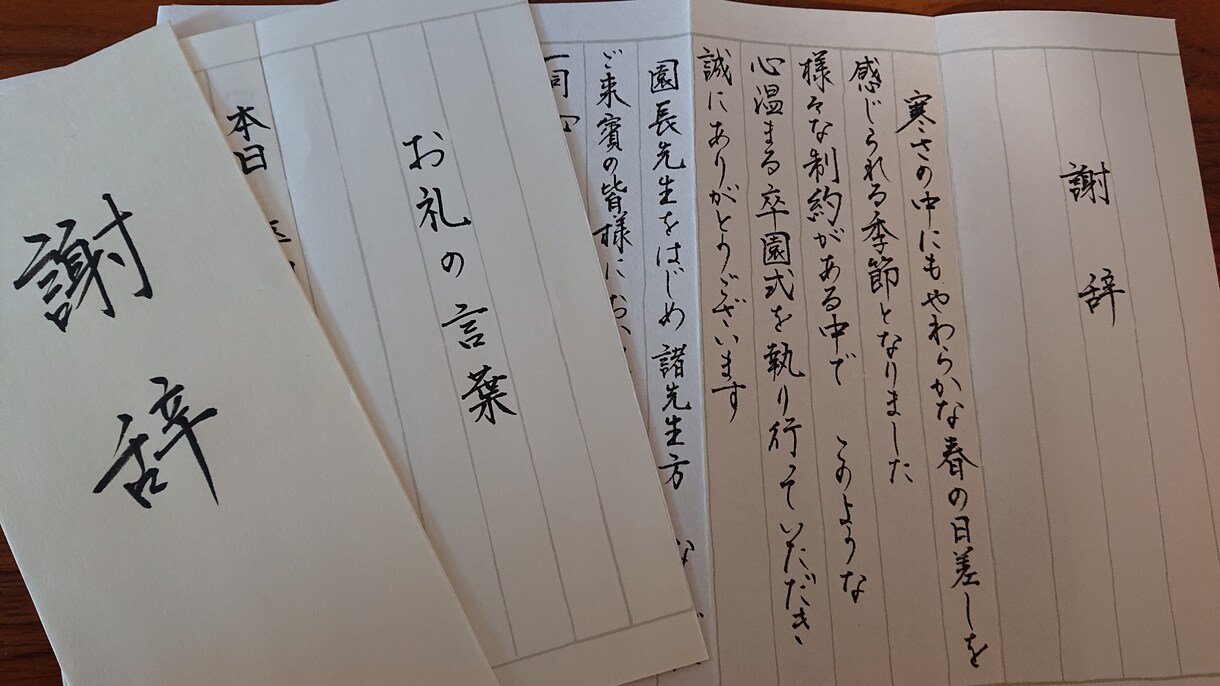 謝辞
寒さの中にもやわらかな春の日差しを
感じられる季節となりました
様々な制約がある中で このような
心温まる卒園式を執り行っていただき
誠にありがとうございます
園長先生をはじめ 諸先生方 な
ご来賓の皆様にお
一同 心
お礼の言葉
本日
謝辞